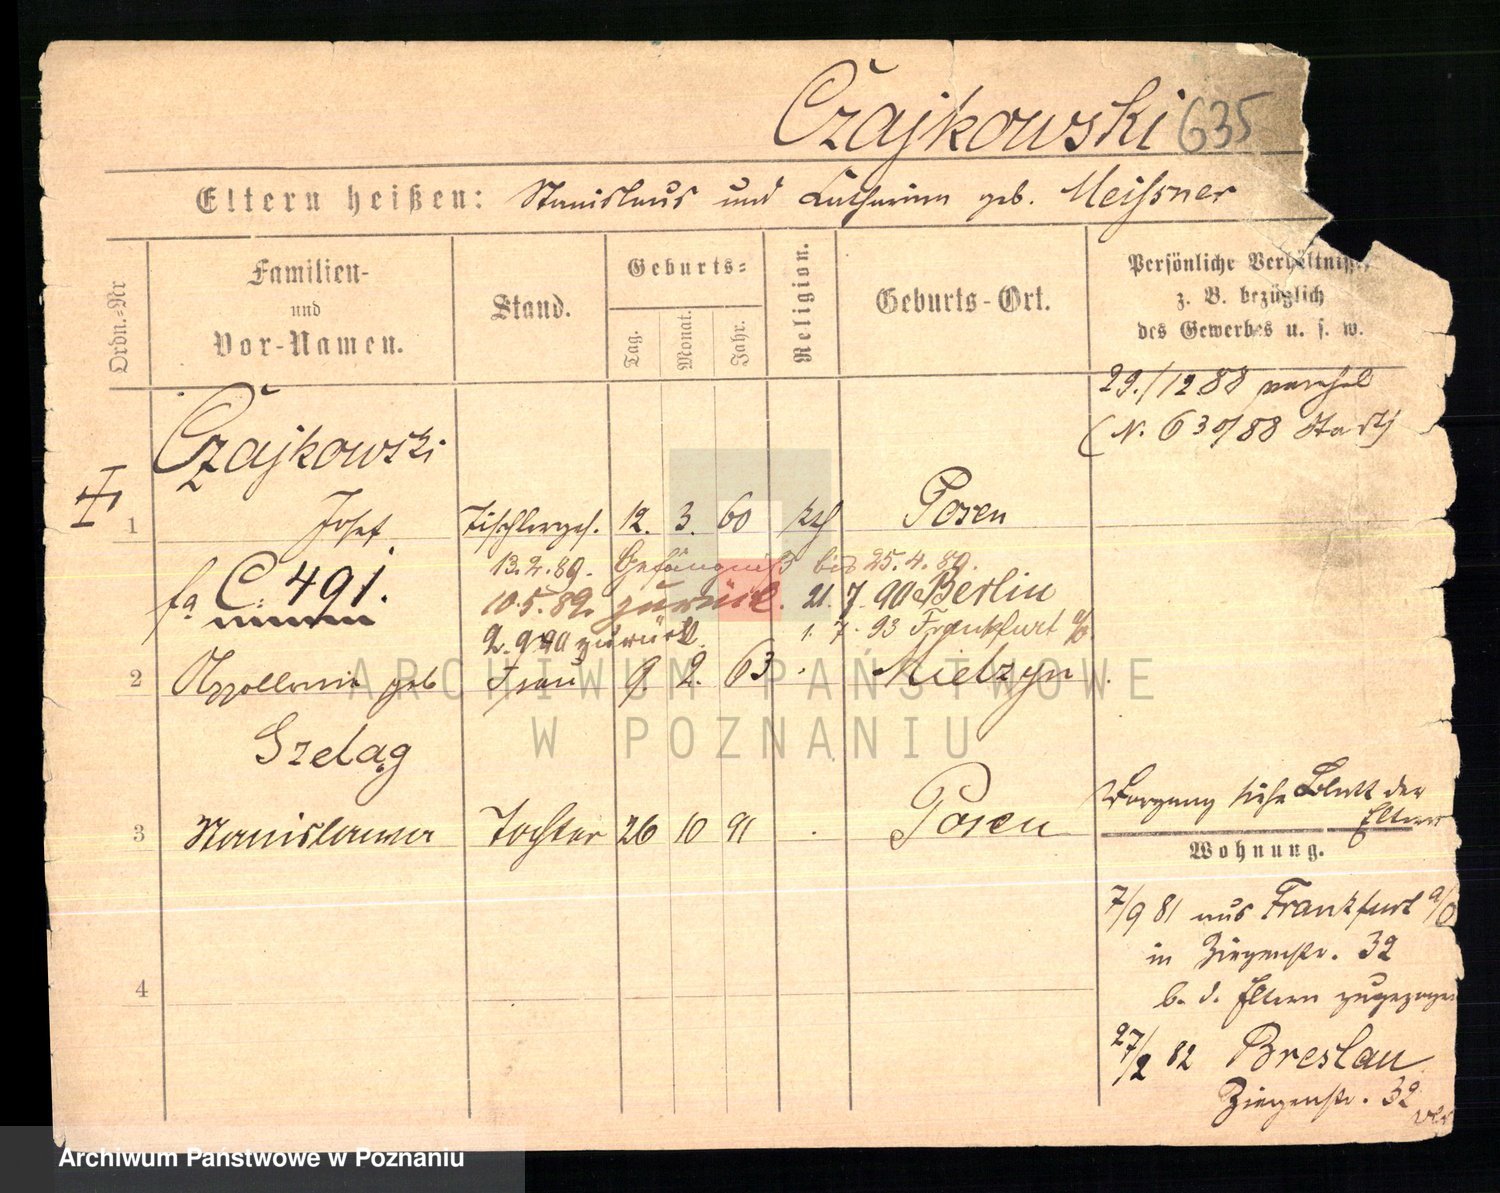 Czajkowski 635
Eltern heißen: Stanislaus und Catharina geb. Meißner
Ordn.-Nr
Familien-
und
Vor-Namen.
Stand.
Geburts-
Tag.
Monat.
Jahr.
Religion.
Geburts-Ort.
Persönliche Verhältnisse
z. B. bezüglich
des Gewerbes u. s. w.
29./12 88 verehel
(N. 630/88 Stadt)
Czajkowski
1 Josef Tischlerges. 12. 3. 60 kth Posen
C. 491.
13.2.89. Gefängniß bis 25.4.89.
10.5.89. zurück. 21. 7. 90 Berlin
2. 9 90 zurück. 1. 7. 93 Frankfurt a/O.
2 Appollonia geb Frau 9. 2. 63 Mielzyn
Szeląg
3 Stanislawa Tochter 26 10 91 Posen
Vorgang siehe Blatt der
Eltern
Wohnung.
7/9 81 aus Frankfurt a/O
in Ziegenstr. 32
b. d. Eltern zugezogen
4
27/2 82 Breslau
Ziegenstr. 32
ARCHIWUM PAŃSTWOWE
W POZNANIU
Archiwum Państwowe w Poznaniu